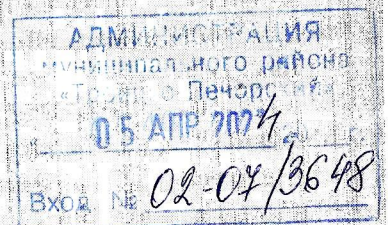 АДМИНИСТРАЦИЯ
муниципального района
«Троицко-Печорский»
05 АПР 2024
Вход. № 02-07/3648